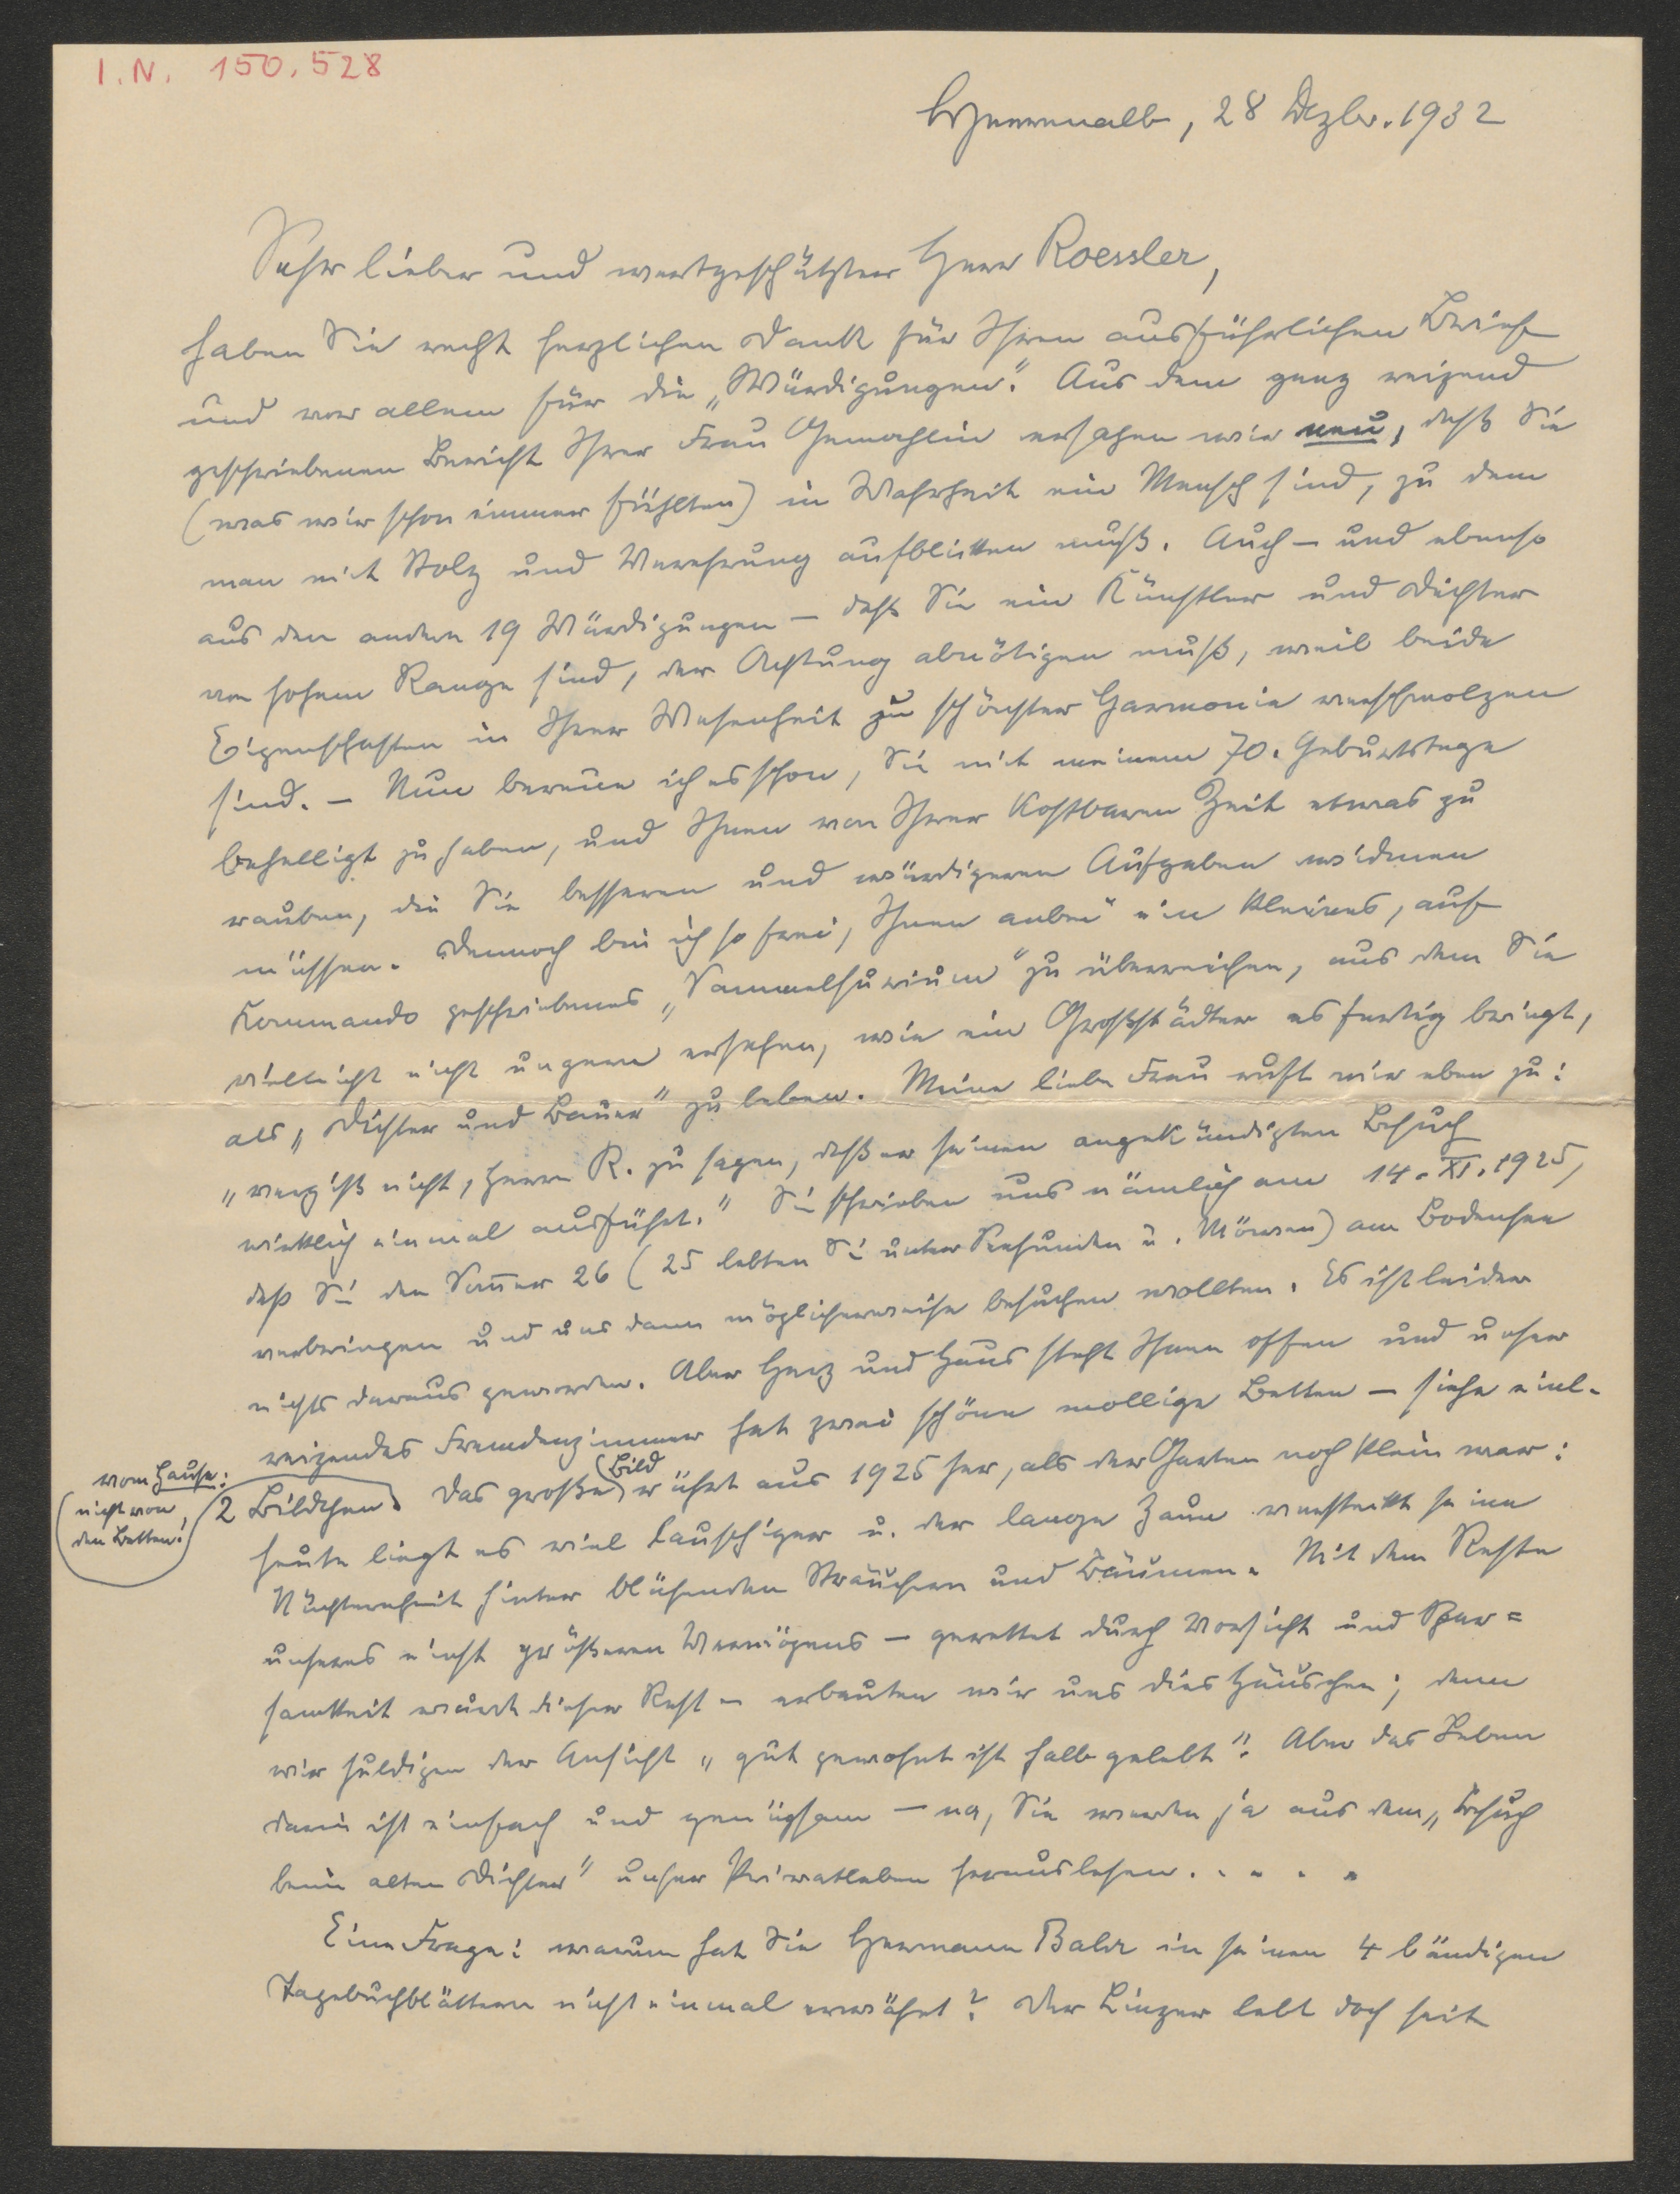 I. N. 150.528
Herrenalb, 28 Dezbr. 1932
Sehr lieber und wertgeschätzter Herr Roessler,
haben Sie recht herzlichen Dank für Ihren ausführlichen Brief
und vor allem für die „Würdigungen“. Aus dem ganz reizend
geschriebenen Bericht Ihrer Frau Gemahlin ersahen wir neu, daß Sie
(was wir schon immer fühlten) in Wahrheit ein Mensch sind, zu dem
man mit Stolz und Verehrung aufblicken muß. Auch – und ebenso
aus den andern 19 Würdigungen – daß Sie ein Künstler und Dichter
von hohem Range sind, der Achtung abnötigen muß, weil beide
Eigenschaften in Ihrer Wesenheit zu schönster Harmonie verschmolzen
sind. – Nun bereue ich es schon, Sie mit meinem 70. Geburtstage
behelligt zu haben, und Ihnen von Ihrer kostbaren Zeit etwas zu
rauben, die Sie besseren und würdigeren Aufgaben widmen
müssen. Dennoch bin ich so frei, Ihnen anbei ein kleines, auf
Kommando geschriebenes „Sammelsurium“ zu überreichen, aus dem Sie
vielleicht nicht ungern ersehen, wie ein Großstädter es fertig bringt,
als „Dichter und Bauer“ zu leben. Meine liebe Frau ruft mir eben zu:
„vergiß nicht, Herrn R. zu sagen, daß er seinen angekündigten Besuch
wirklich einmal ausführt.“ Sie schrieben uns nämlich am 14. XI. 1925,
daß Sie den Som̅er 26 (25 lebten Sie unter Seehunden u. Möwen) am Bodensee
verbringen und uns dann möglicherweise besuchen wollten. Es ist leider
nichts daraus geworden. Aber Herz und Haus steht Ihnen offen und unser
reizendes Fremdenzimmer hat zwei schöne mollige Betten – siehe einl.
2 Bildchen. Das große (Bild) rührt aus 1925 her, als der Garten noch klein war:
vom Hause:
(nicht von
den Betten!)
heute liegt es viel lauschiger u. der lange Zaun versteckt seine
Nüchternheit hinter blühenden Sträuchern und Bäumen. Mit dem Reste
unseres einst größeren Vermögens – gerettet durch Vorsicht und Spar=
samkeit wurde dieser Rest – erbauten wir uns dies Häuschen; denn
wir huldigen der Ansicht „gut gewohnt ist halb gelebt“. Aber das Leben
darin ist einfach und genügsam – na, Sie werden ja aus dem „Besuch
beim alten Dichter“ unser Privatleben herauslesen. . . . .
Eine Frage: warum hat Sie Hermann Bahr in seinen 4 bändigen
Tagebuchblättern nicht einmal erwähnt? Der Linzer lebt doch seit